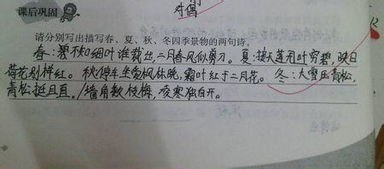 课后巩固
对偶
请分别写出描写春、夏、秋、冬四季景物的两句诗。
春：碧不知细叶谁裁出，二月春风似剪刀。夏：接天莲叶无穷碧，映日
荷花别样红。秋：停车坐爱枫林晚，霜叶红于二月花。冬：大雪压青松，
青松挺且直。/墙角数枝梅，凌寒独自开。